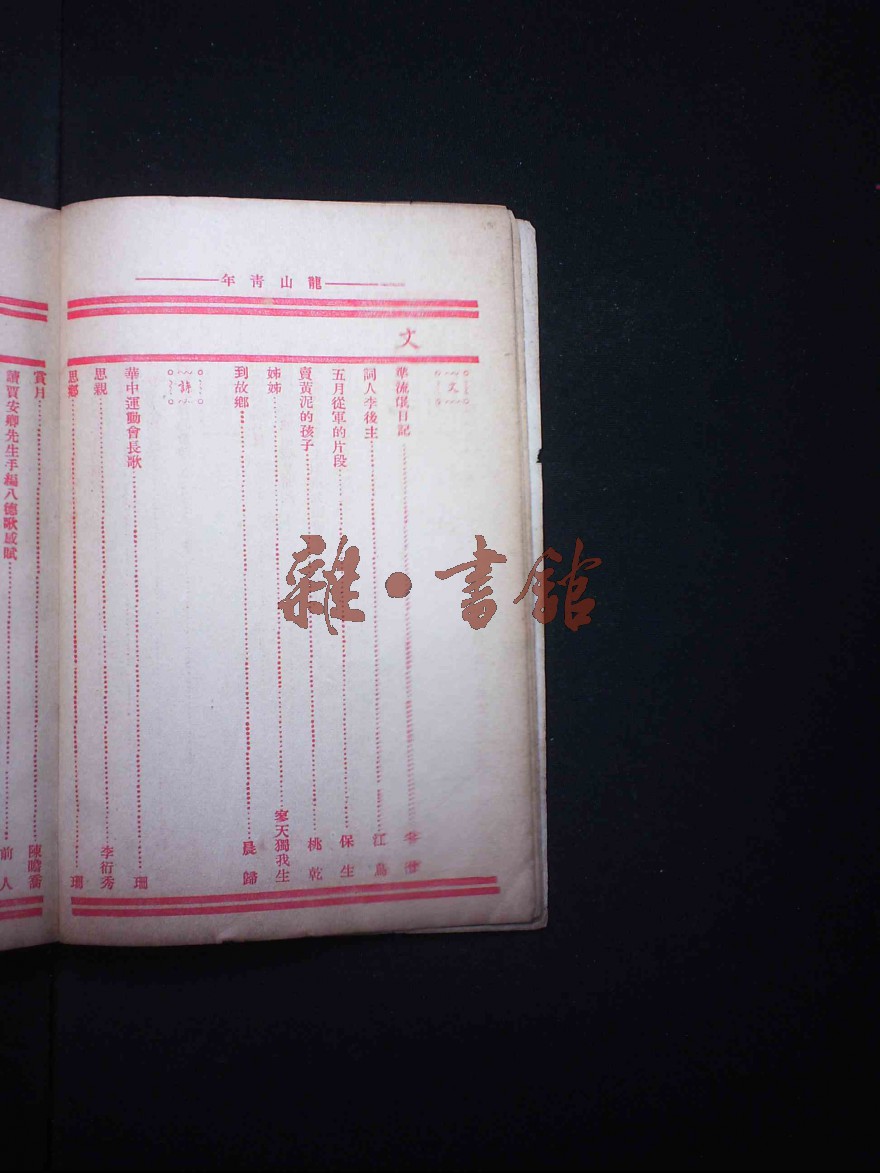 龍山青年
文
文
準流氓日記
詞人李後主 江鳥
五月從軍的片段 保生
賣黃泥的孩子 桃乾
姊姊 寥天獨我生
到故鄉 晨歸
詩
華中運動會長歌 珊
思親 李衍秀
思鄉 珊
賞月 陳瞻喬
讀賈安卿先生手編八德歌感賦 前人
雜·書館